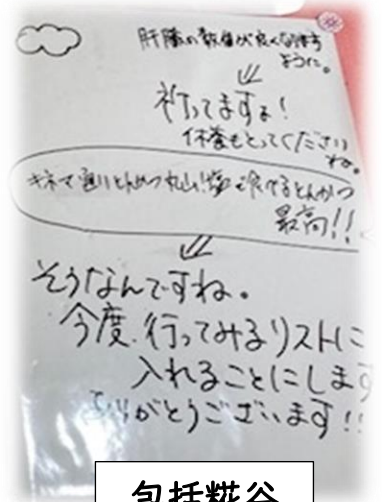 肝臓の数値が良くなります
ように。
祈ってますよ!
休養もとってください
ね。
キネマ通りとんかつ丸山!塩で食べるとんかつ
最高!!
そうなんですね。
今度、行ってみるリストに
入れることにします
ありがとうございます!!
包括糀谷